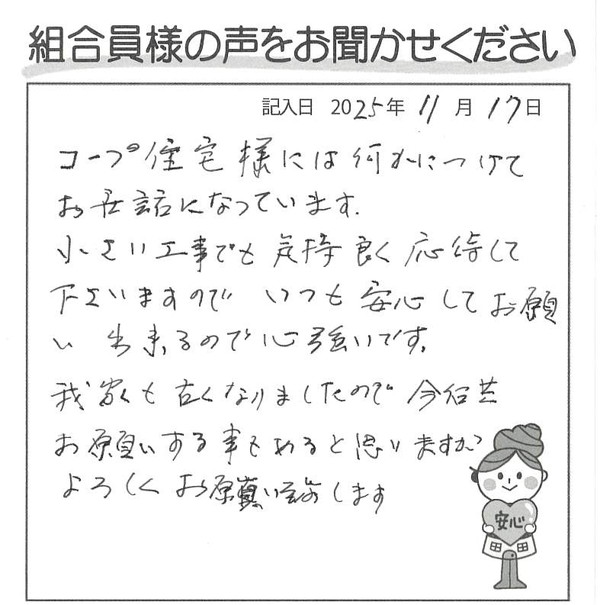 組合員様の声をお聞かせください
記入日 2025年 11月 17日
コープ住宅様には何かにつけて
お世話になっています.
小さい工事でも 気持良く 応待して
下さいますので いつも 安心してお願
い 出来るので心強いです.
我家も古くなりましたので 今后共
お願いする事もあると思いますが
よろしく お願い致します
安心